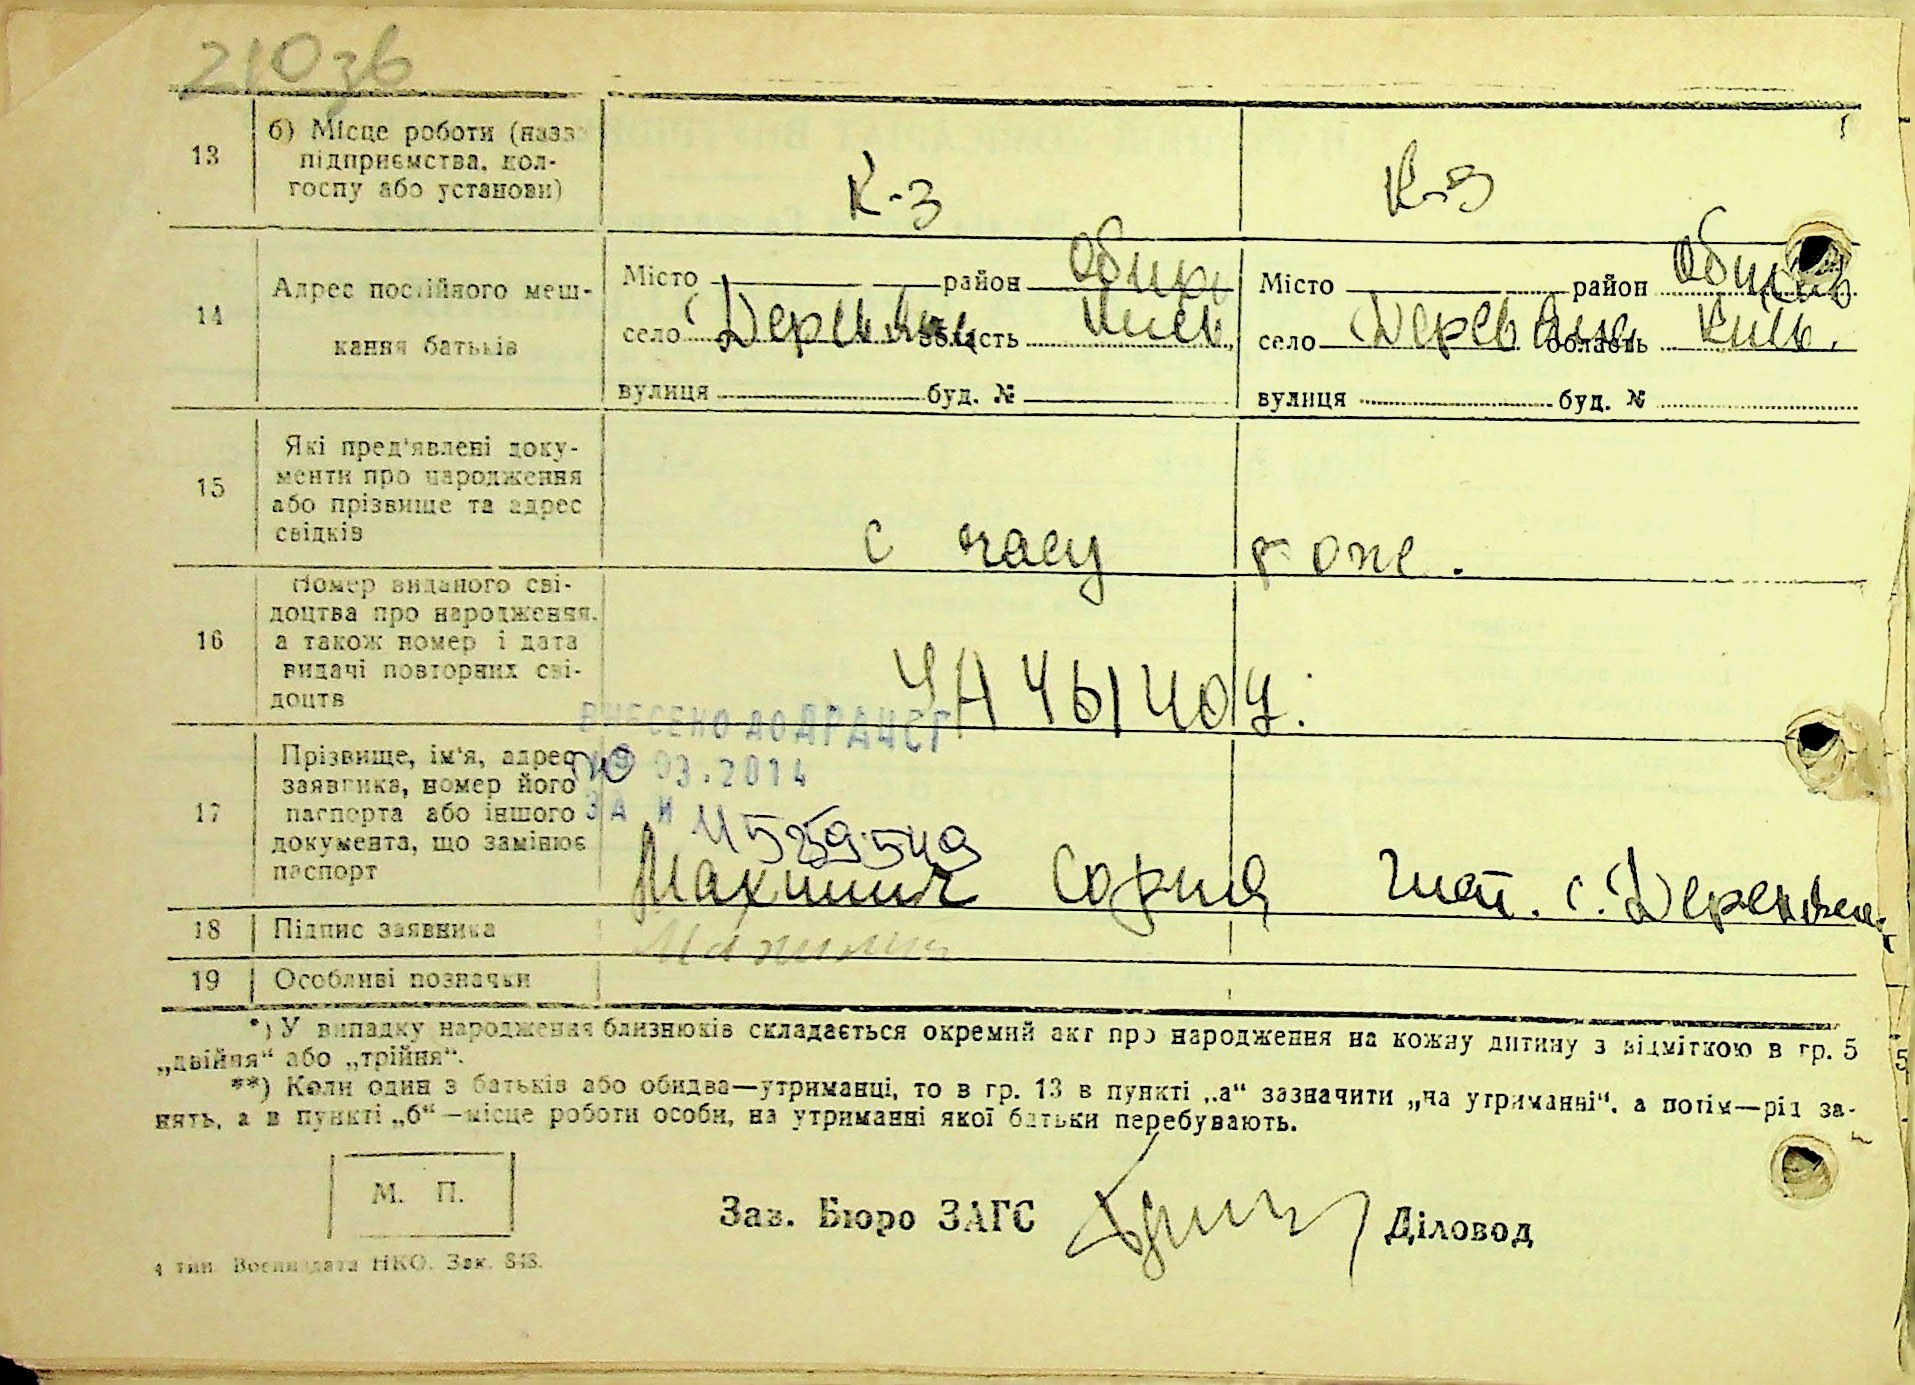 210зв
13 б) Місце роботи (назва
підприємства, кол-
госпу або установи)
К-з К-з
14 Адрес постійного меш-
кання батьків
Місто район Обух Місто район Обух
село Дерев'яна область Київ село Дерев'яна область Київ.
вулиця буд. № вулиця буд. №
15 Які пред'явлені доку-
менти про народження
або прізвище та адрес
свідків
с часу рож.
16 Номер виданого сві-
доцтва про народження,
а також номер і дата
видачі повторних сві-
доцтв
ВНЕСЕНО ДО ДРАЦСГ
03.2014
ЗА №
17 Прізвище, ім'я, адрес
заявника, номер його
паспорта або іншого
документа, що замінює
паспорт
18 Підпис заявника
19 Особливі позначки
*) У випадку народження близнюків складається окремий акт про народження на кожну дитину з відміткою в гр. 5
„двійня“ або „трійня“.
**) Коли один з батьків або обидва—утриманці, то в гр. 13 в пункті „а“ зазначити „на утриманні“, а потім—рід за-
нять, а в пункті „б“—місце роботи особи, на утриманні якої батьки перебувають.
М. П.
Зав. Бюро ЗАГС Діловод
4 тип. Воениздата НКО. Зак. 848.